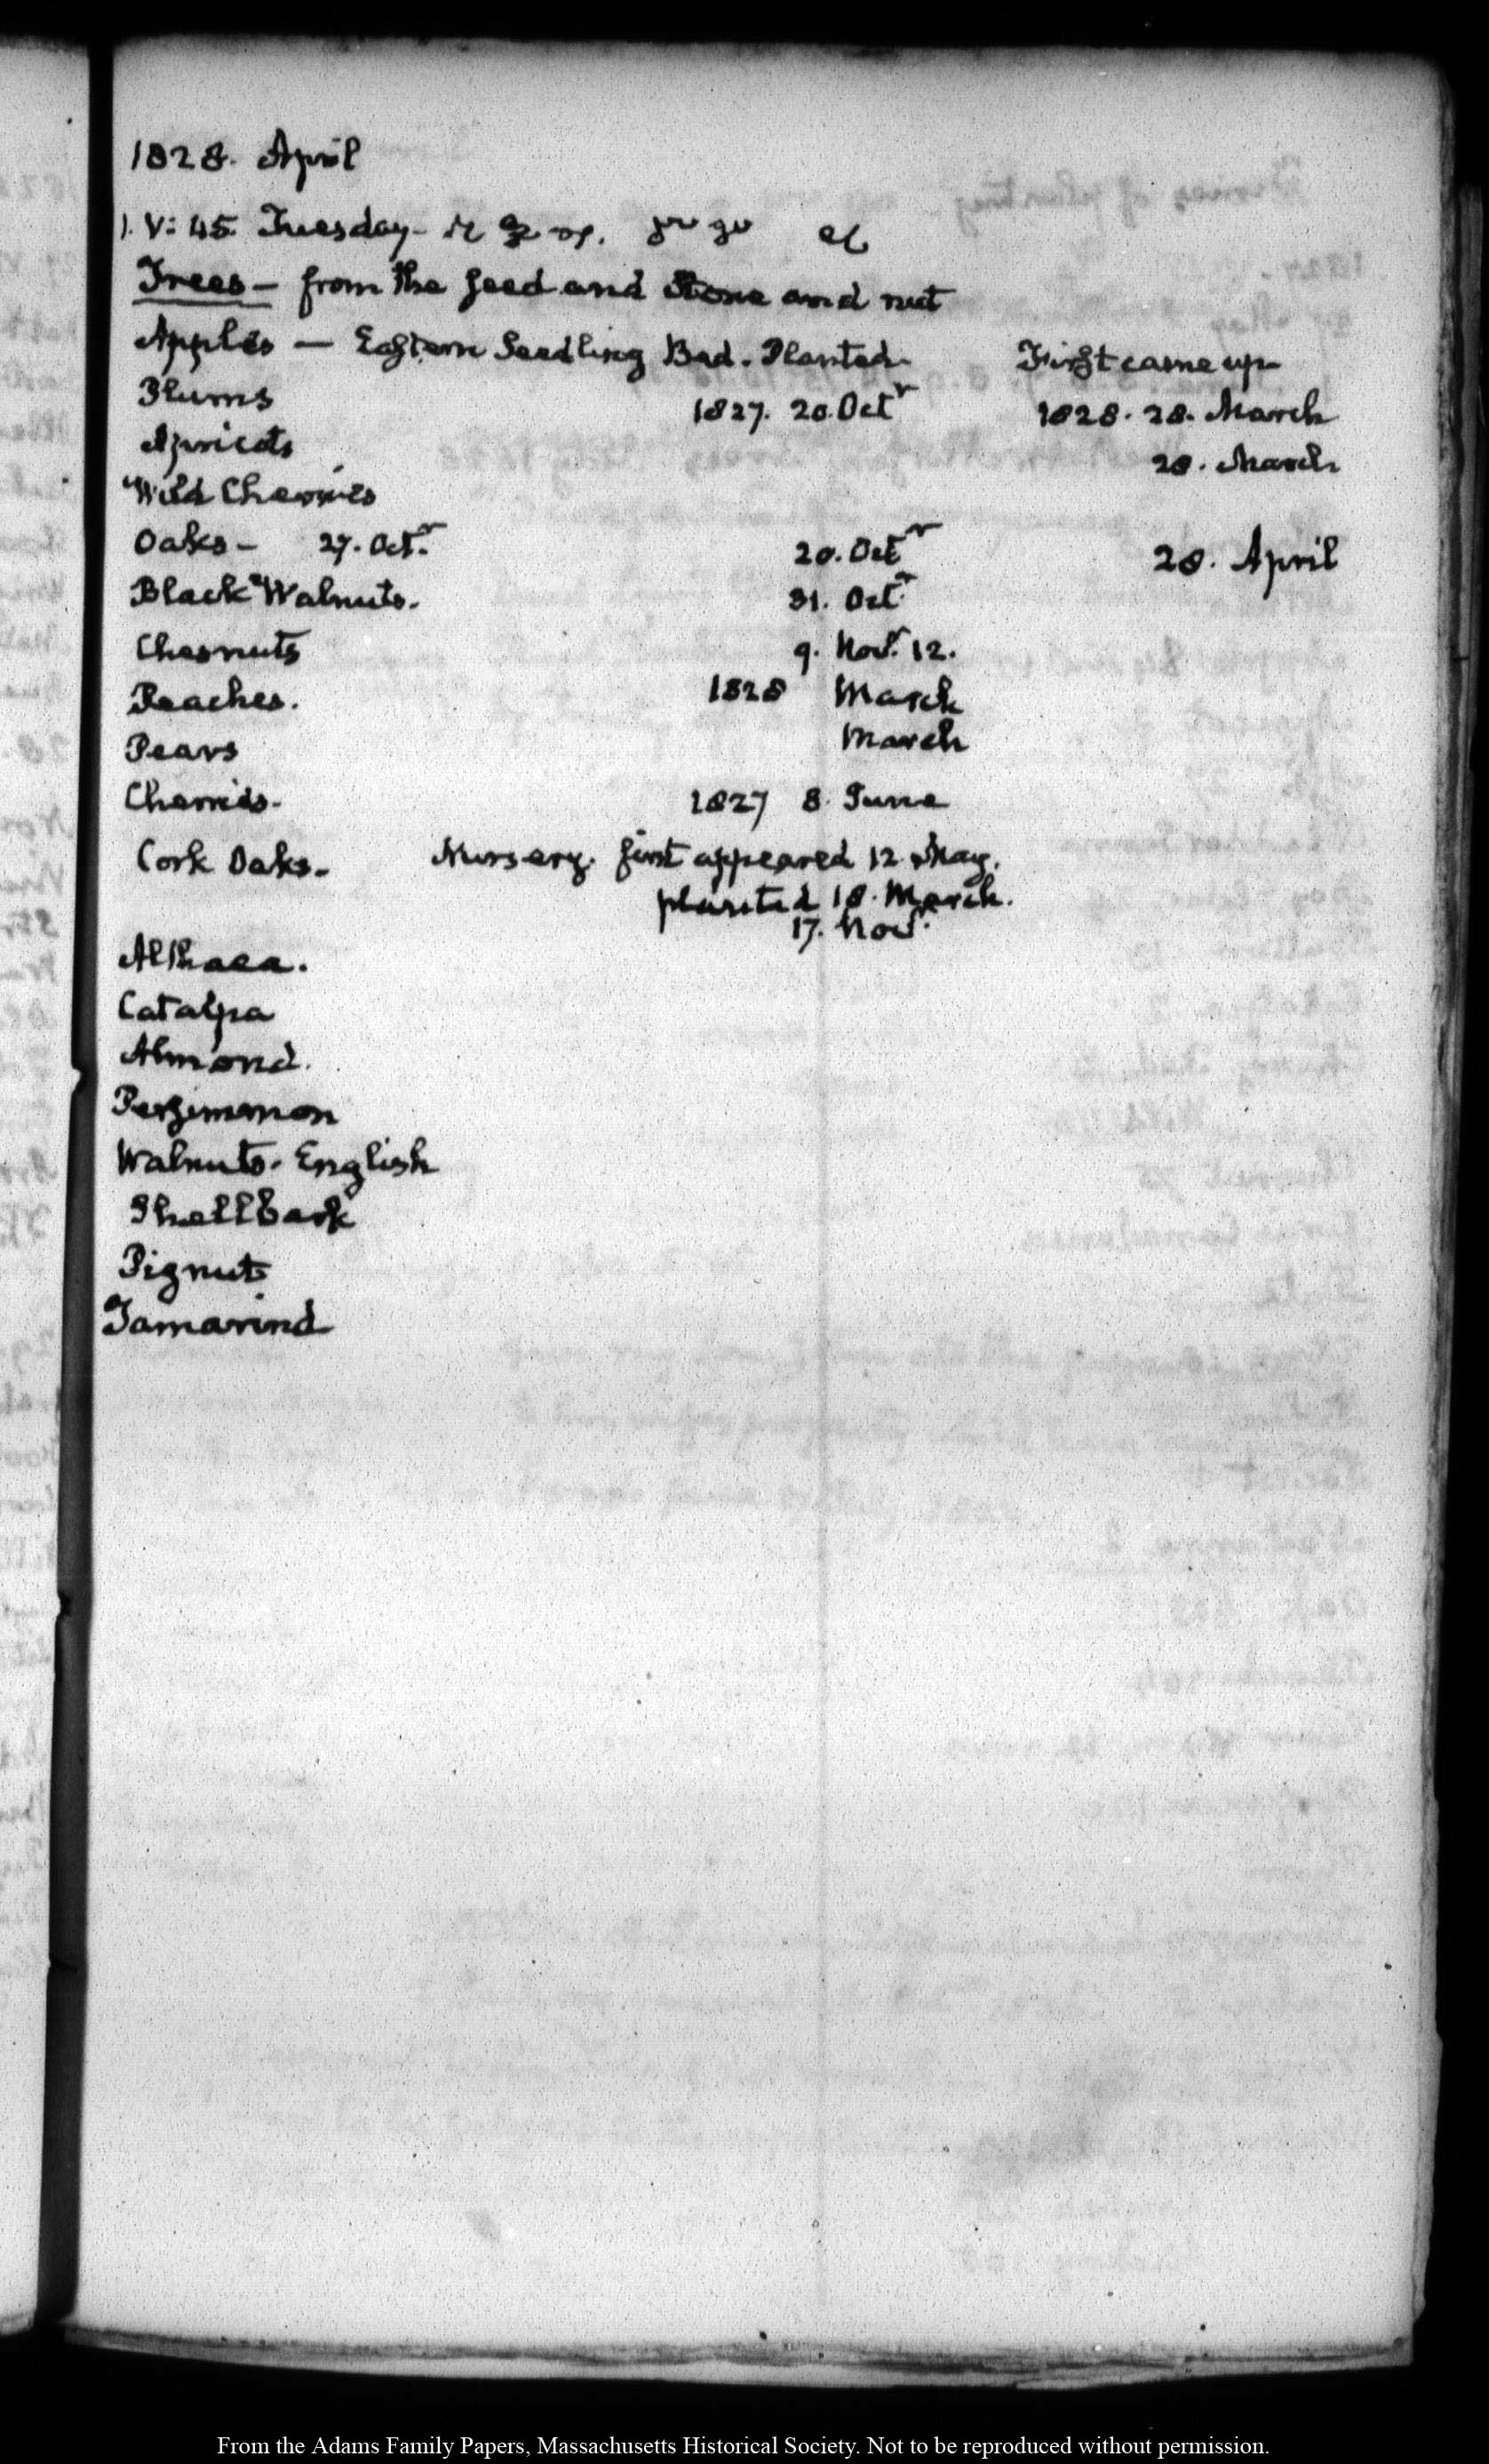 1828. April
1. V: 45. Tuesday-
Trees - from the seed and stone and nut
Apples — Eastern Seedling Bed. Planted. First came up
Plums 1827. 20. Octr 1828. 28. March
Apricots 28. March
Wild Cherries
Oaks - 27. Octr. 20. Octr 28. April
Black Walnuts. 31. Octr.
Chesnuts 9. Novr. 12.
Peaches. 1828 March
Pears March
Cherries. 1827 8. June
Cork Oaks. Nursery. first appeared 12. May.
planted 18. March.
17. Novr.
Althaea.
Catalpa
Almond.
Persimmon
Walnuts. English
Shellbark
Pignut
Tamarind
From the Adams Family Papers, Massachusetts Historical Society. Not to be reproduced without permission.